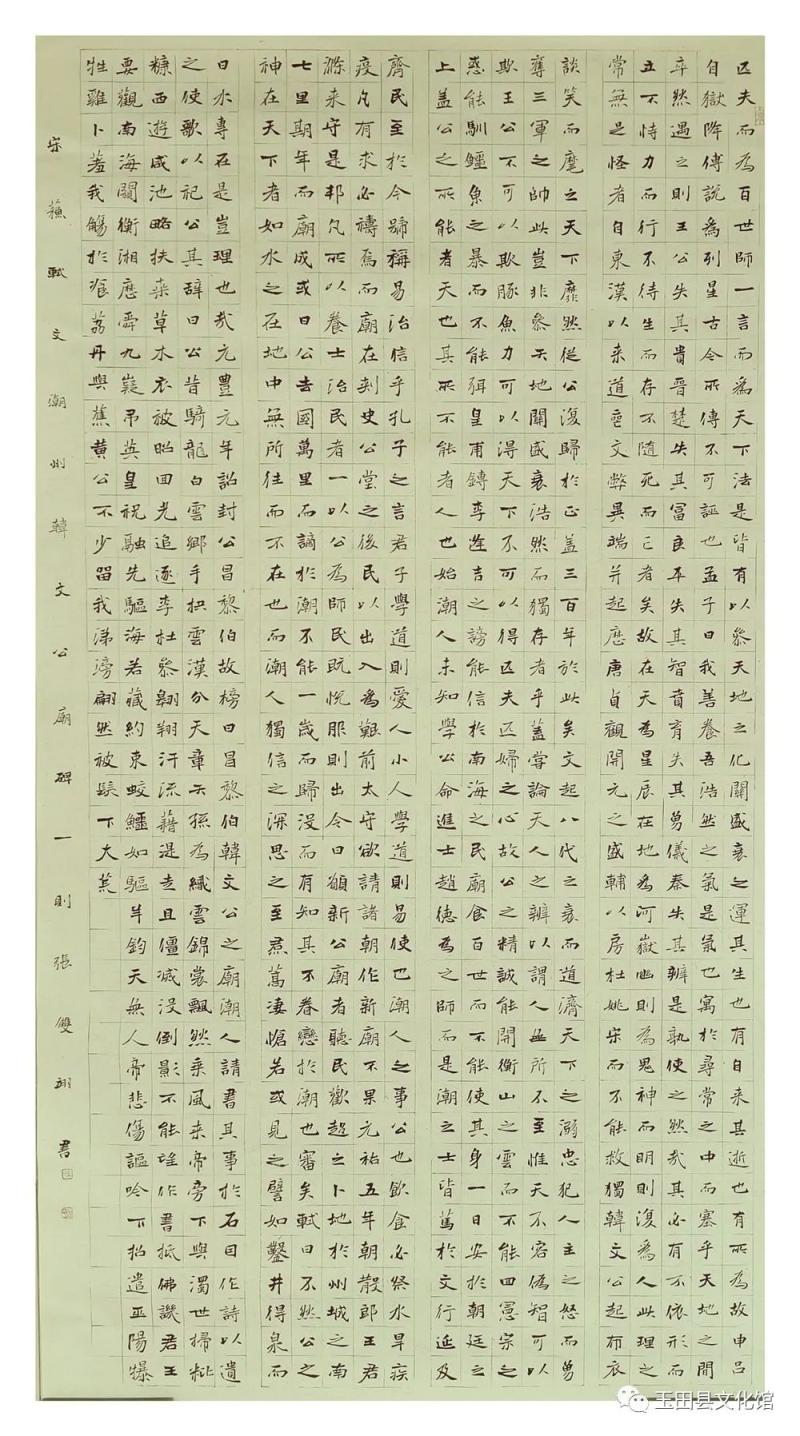 匹夫而為百世師一言而為天下法是皆有以參天地之化關盛衰之運其生也有自来其逝也有所為故申呂
自嶽降傅說為列星古今所傳不可誣也孟子曰我善養吾浩然之氣是氣也寓於尋常之中而塞乎天地之間
卒然遇之則王公失其貴晉楚失其富良平失其智賁育失其勇儀秦失其辨是孰使之然哉其必有不依形而
立不恃力而行不待生而存不随死而亡者矣故在天為星辰在地為河嶽幽則為鬼神而明則復為人此理之
常無足怪者自東漢以来道喪文弊異端并起歷唐貞觀開元之盛輔以房杜姚宋而不能救獨韓文公起布衣
談笑而麾之天下靡然從公復歸於正蓋三百年於此矣文起八代之衰而道濟天下之溺忠犯人主之怒而勇
奪三軍之帥此豈非參天地關盛衰浩然而獨存者乎蓋嘗論天人之辨以謂人無所不至惟天不容偽智可以
欺王公不可以欺豚魚力可以得天下不可以得匹夫匹婦之心故公之精誠能開衡山之雲而不能回憲宗之
惑能馴鱷魚之暴而不能弭皇甫鎛李逢吉之謗能信於南海之民廟食百世而不能使其身一日安於朝廷之
上蓋公之所能者天也其所不能者人也始潮人未知學公命進士趙德為之師而是潮之士皆篤於文行延及
齊民至於今號稱易治信乎孔子之言君子學道則愛人小人學道則易使也潮人之事公也飲食必祭水旱疾
疫凡有求必禱焉而廟在刺史公堂之後民以出入為難前太守欲請諸朝作新廟不果元祐五年朝散郎王君
滌来守是邦凡所以養士治民者一以公為師民既悅服則出令曰願新公廟者聽民歡趨之卜地於州城之南
七里期年而廟成或曰公去國萬里而謫於潮不能一歲而歸沒而有知其不眷戀於潮也審矣軾曰不然公之
神在天下者如水之在地中無所往而不在也而潮人獨信之深思之至焄蒿凄愴若或見之譬如鑿井得泉而
曰水專在是豈理也哉元豐元年詔封公昌黎伯故榜曰昌黎伯韓文公之廟潮人請書其事於石因作詩以遺
之使歌以祀公其辭曰公昔騎龍白雲鄉手抉雲漢分天章天孫為織雲錦裳飄然乘風来帝旁下與濁世掃秕
糠西遊咸池略扶桑草木衣被昭回光追逐李杜參翱翔汗流籍湜走且僵滅没倒影不能望作書抵佛譏君王
要觀南海闚衡湘歷舜九嶷吊英皇祝融先驅海若藏約束蛟鱷如驅羊鈞天無人帝悲傷謳吟下招遣巫陽犦
牲雞卜羞我觴於粲荔丹與蕉黃公不少留我涕滂翩然被髮下大荒
宋蘇軾文潮州韓文公廟碑一則張雙翊書
玉田县文化馆